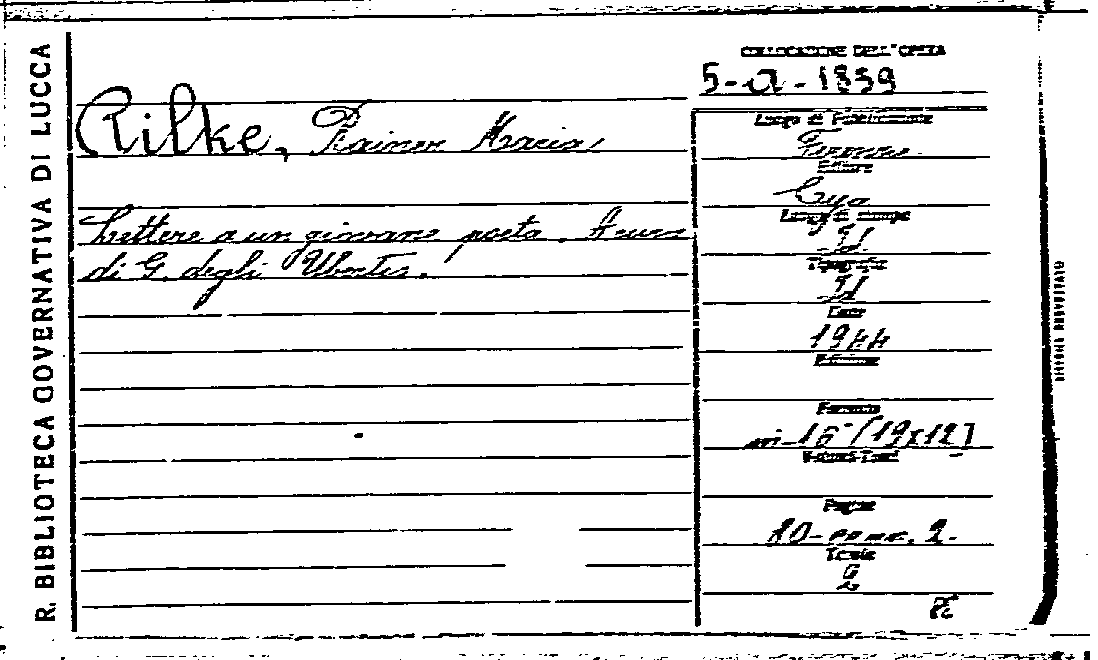 R. BIBLIOTECA GOVERNATIVA DI LUCCA
COLLOCAZIONE DELL'OPERA
5-a-1839
Rilke, Rainer Maria
Lettere a un giovane poeta. A cura
di G. degli Uberti.
Luogo di Pubblicazione
Firenze
Editore
Cya
Luogo di stampa
Id.
Tipografia
Id.
Data
1944
Edizione
Formato
in-16° (19x12)
Volumi-Tomi
Pagine
80- 2.
Tavole